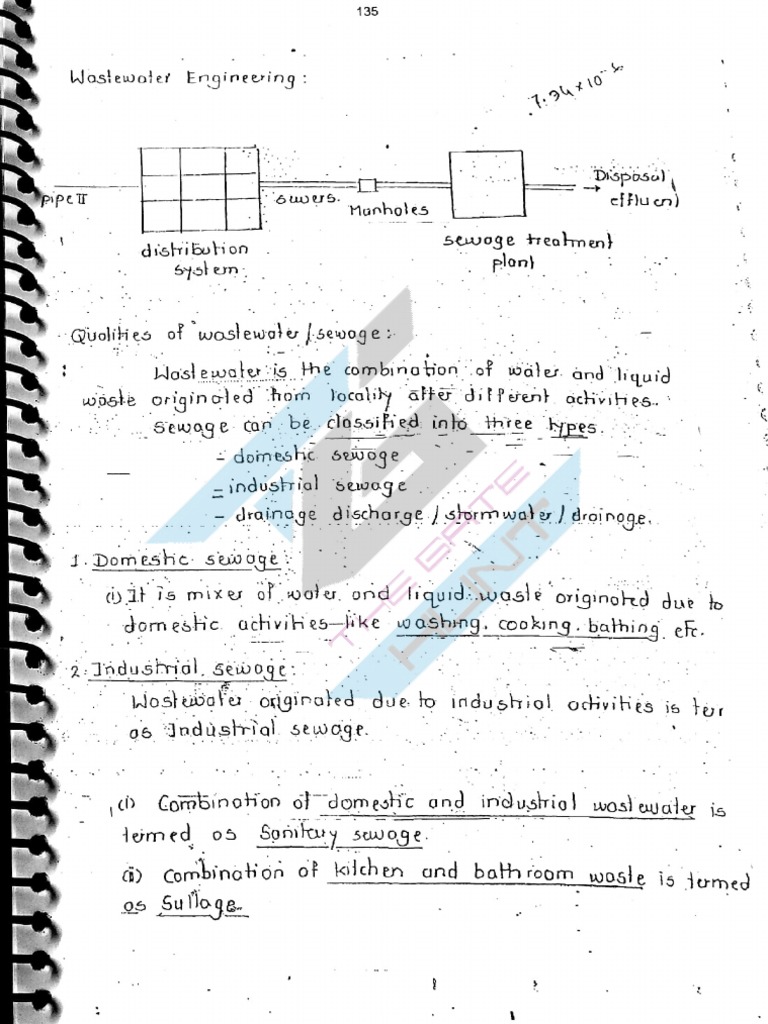 135
Wastewater Engineering :
7.94 x 10⁻⁶
pipe II
sewers.
Manholes
Disposal/
effluent
distribution
system.
sewage treatment
plant
Qualities of wastewater / sewage :
Wastewater is the combination of water and liquid
waste originated from locality after different activities.
Sewage can be classified into three types.
- domestic sewage
- industrial sewage
- drainage discharge / stormwater / drainage.
1. Domestic sewage :
(i) It is mixer of water and liquid waste originated due to
domestic activities like washing, cooking, bathing etc.
2. Industrial sewage :
Wastewater originated due to industrial activities is ter
as Industrial sewage.
(i) Combination of domestic and industrial wastewater is
termed as Sanitary sewage.
(ii) Combination of kitchen and bathroom waste is termed
as Sullage.
THE GATE
HUNT